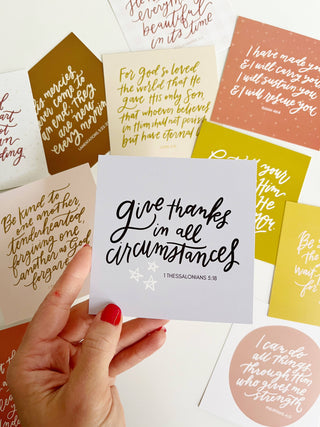 everything
beautiful
in its time
I have made you
& I will carry you
I will sustain you
& I will rescue you
ISAIAH 46:4
his mercies
never come to
an end; they
are new
every morning
For God so loved
the world that He
gave His only Son,
that whoever believes
in Him shall not perish
but have eternal
heart
not
on
your
Him
He
Be kind to
one another
tenderhearted,
forgiving one
another as God
forgave
give thanks
in all
circumstances
1 THESSALONIANS 5:18
Be
the
wait
for
I can do
all things
through Him
who gives me
strength
PHILIPPIANS 4:13